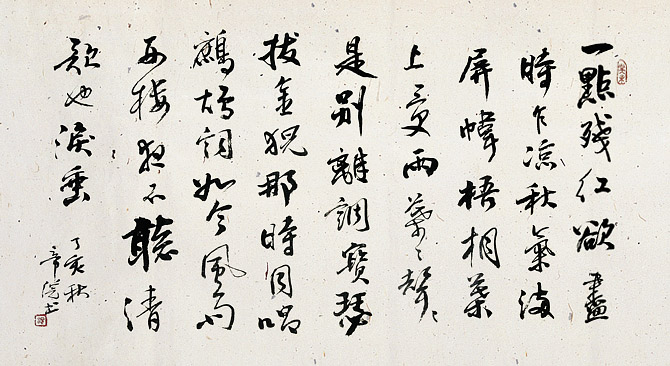 一點殘紅欲盡
時乍涼秋氣滿
屏幃梧桐葉
上三更雨葉〻聲〻
是別離調寶瑟
撥金猊那時同唱
鷓鴣詞如今風雨
西樓夜不聽清
歌也淚垂
丁亥秋